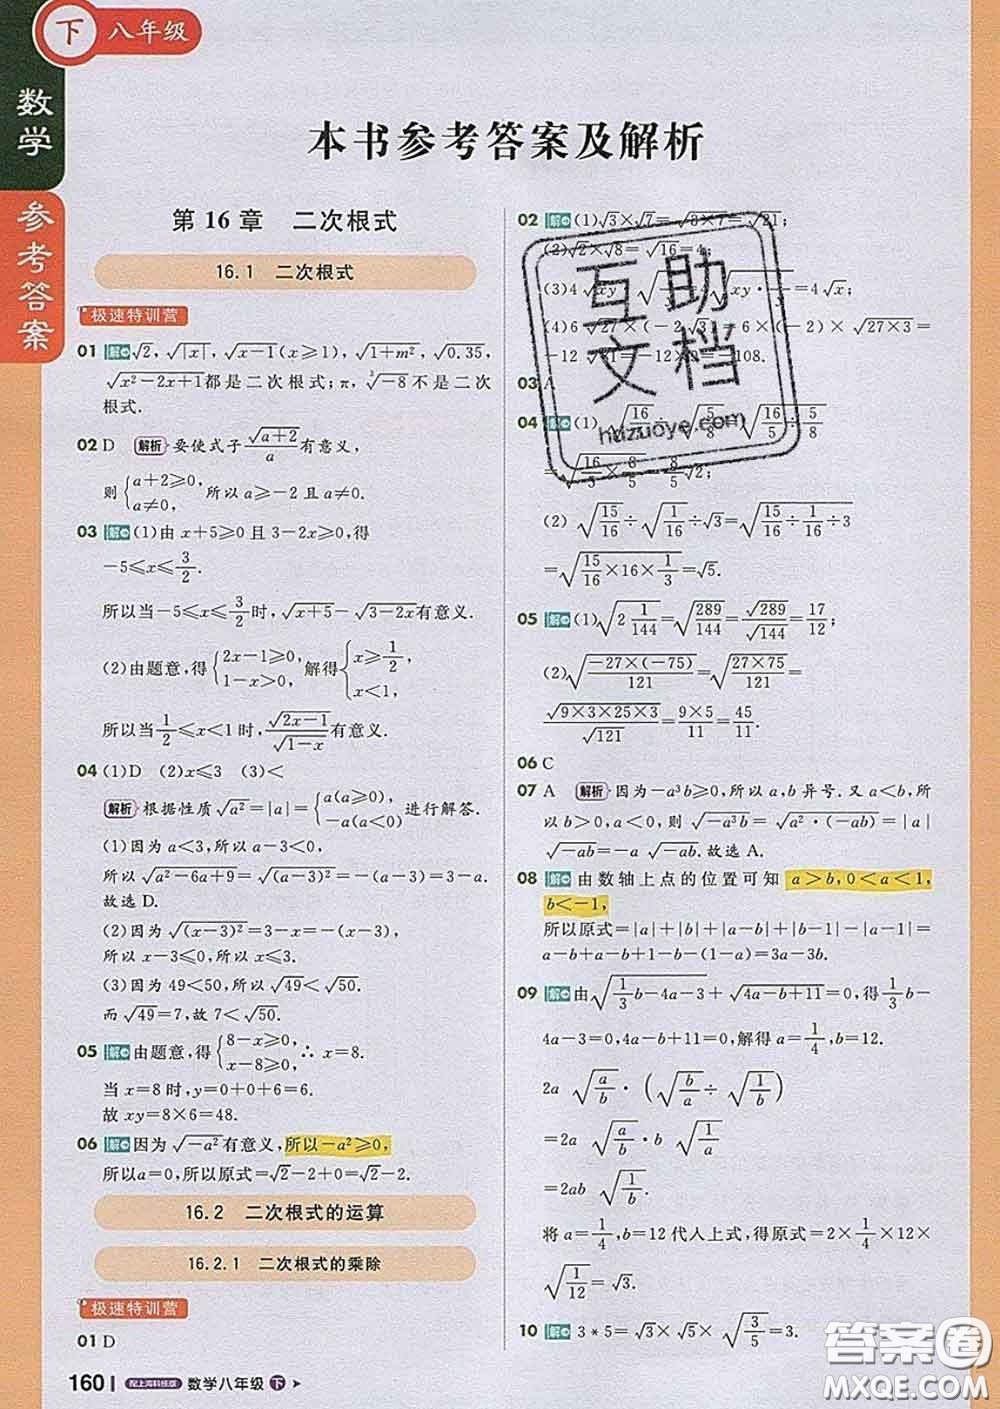 下 八年级
数学
参考答案
本书参考答案及解析
第16章 二次根式
16.1 二次根式
极速特训营
01 解 √2, √|x|, √(x-1)(x≥1), √(1+m²), √0.35,
√(x²-2x+1)都是二次根式;π, ³√-8不是二次
根式.
02 D 解析 要使式子√(a+2)/a有意义,
则{a+2≥0, a≠0, 所以a≥-2且a≠0.
03 解 (1)由x+5≥0且3-2x≥0,得
-5≤x≤3/2.
所以当-5≤x≤3/2时,√(x+5)-√(3-2x)有意义.
(2)由题意,得{2x-1≥0, 1-x>0, 解得{x≥1/2, x<1,
所以当1/2≤x<1时,√(2x-1)/√(1-x)有意义.
04 (1)D (2)x≤3 (3)<
解析 根据性质√a²=|a|={a(a≥0), -a(a<0) 进行解答.
(1)因为a<3,所以a-3<0.
所以√(a²-6a+9)=√(a-3)²=-(a-3)=3-a.
故选D.
(2)因为√(x-3)²=3-x=-(x-3),
所以x-3≤0,所以x≤3.
(3)因为49<50,所以√49<√50.
而√49=7,故7<√50.
05 解 由题意,得{8-x≥0, x-8≥0, ∴x=8.
当x=8时,y=0+0+6=6.
故xy=8×6=48.
06 解 因为√-a²有意义,所以-a²≥0,
所以a=0,所以原式=√2-2+0=√2-2.
16.2 二次根式的运算
16.2.1 二次根式的乘除
极速特训营
01 D
160 配上海科技版 数学八年级 下
02 解 (1)√3×√7=√(3×7)=√21;
(2)√2×√8=√16=4;
(3)4√xy· =√(xy· )=4√x;
(4)6√27×(-2√3)=6×(-2)×√(27×3)=
-12 =-12 =-108.
03 A
04 解 (1)√(16/5)÷√(5/8)=√(16/5÷5/8)
=√(16/5×8/5)=8/5√2;
(2)√(15/16)÷√(1/16)÷√3=√(15/16÷1/16÷3)
=√(15/16×16×1/3)=√5.
05 解 (1)√(2 1/144)=√(289/144)=√289/√144=17/12;
(2)√(-27×(-75)/121)=√(27×75/121)=
√(9×3×25×3)/√121=9×5/11=45/11.
06 C
07 A 解析 因为-a³b≥0,所以a,b异号.又a<b,所
以b>0,a<0,则√(-a³b)=√(a²·(-ab))=|a|
√-ab=-a√-ab.故选A.
08 解 由数轴上点的位置可知a>b,0<a<1,
b<-1,
所以原式=|a|+|b|+|a-b|+|b-1|-|a-1|=
a-b+a-b+1-b-(1-a)=3a-3b.
09 解 由√(1/3b-4a-3)+√(4a-b+11)=0,得1/3b-
4a-3=0,4a-b+11=0,解得a=1/4,b=12.
2a√(a/b)·(√(b/a)÷√(1/b))
=2a√(a/b)·b√(1/a)
=2ab√(1/b).
将a=1/4,b=12代人上式,得原式=2×1/4×12×
√(1/12)=√3.
10 解 3*5=√3×√5×√(3/5)=3.
互助文档
huzuoye.com
答案圈
MXQE.COM